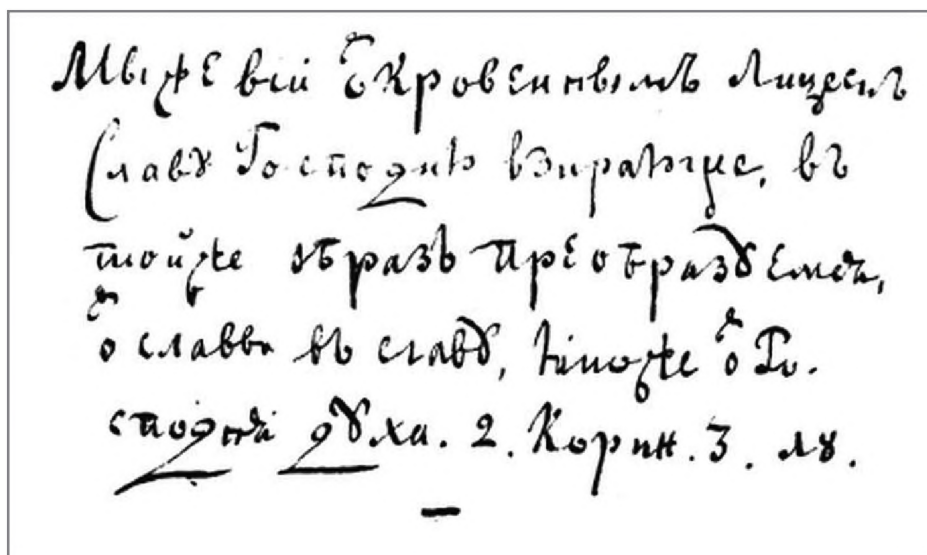 Мыже вси ѿкровеннымъ лицемъ
Славꙋ Господню взирающе, въ
тойже ѡбразъ преобразꙋемся,
ѿ славы въ славꙋ, якоже ѿ Го-
сподня дꙋха. 2. Корин. 3.